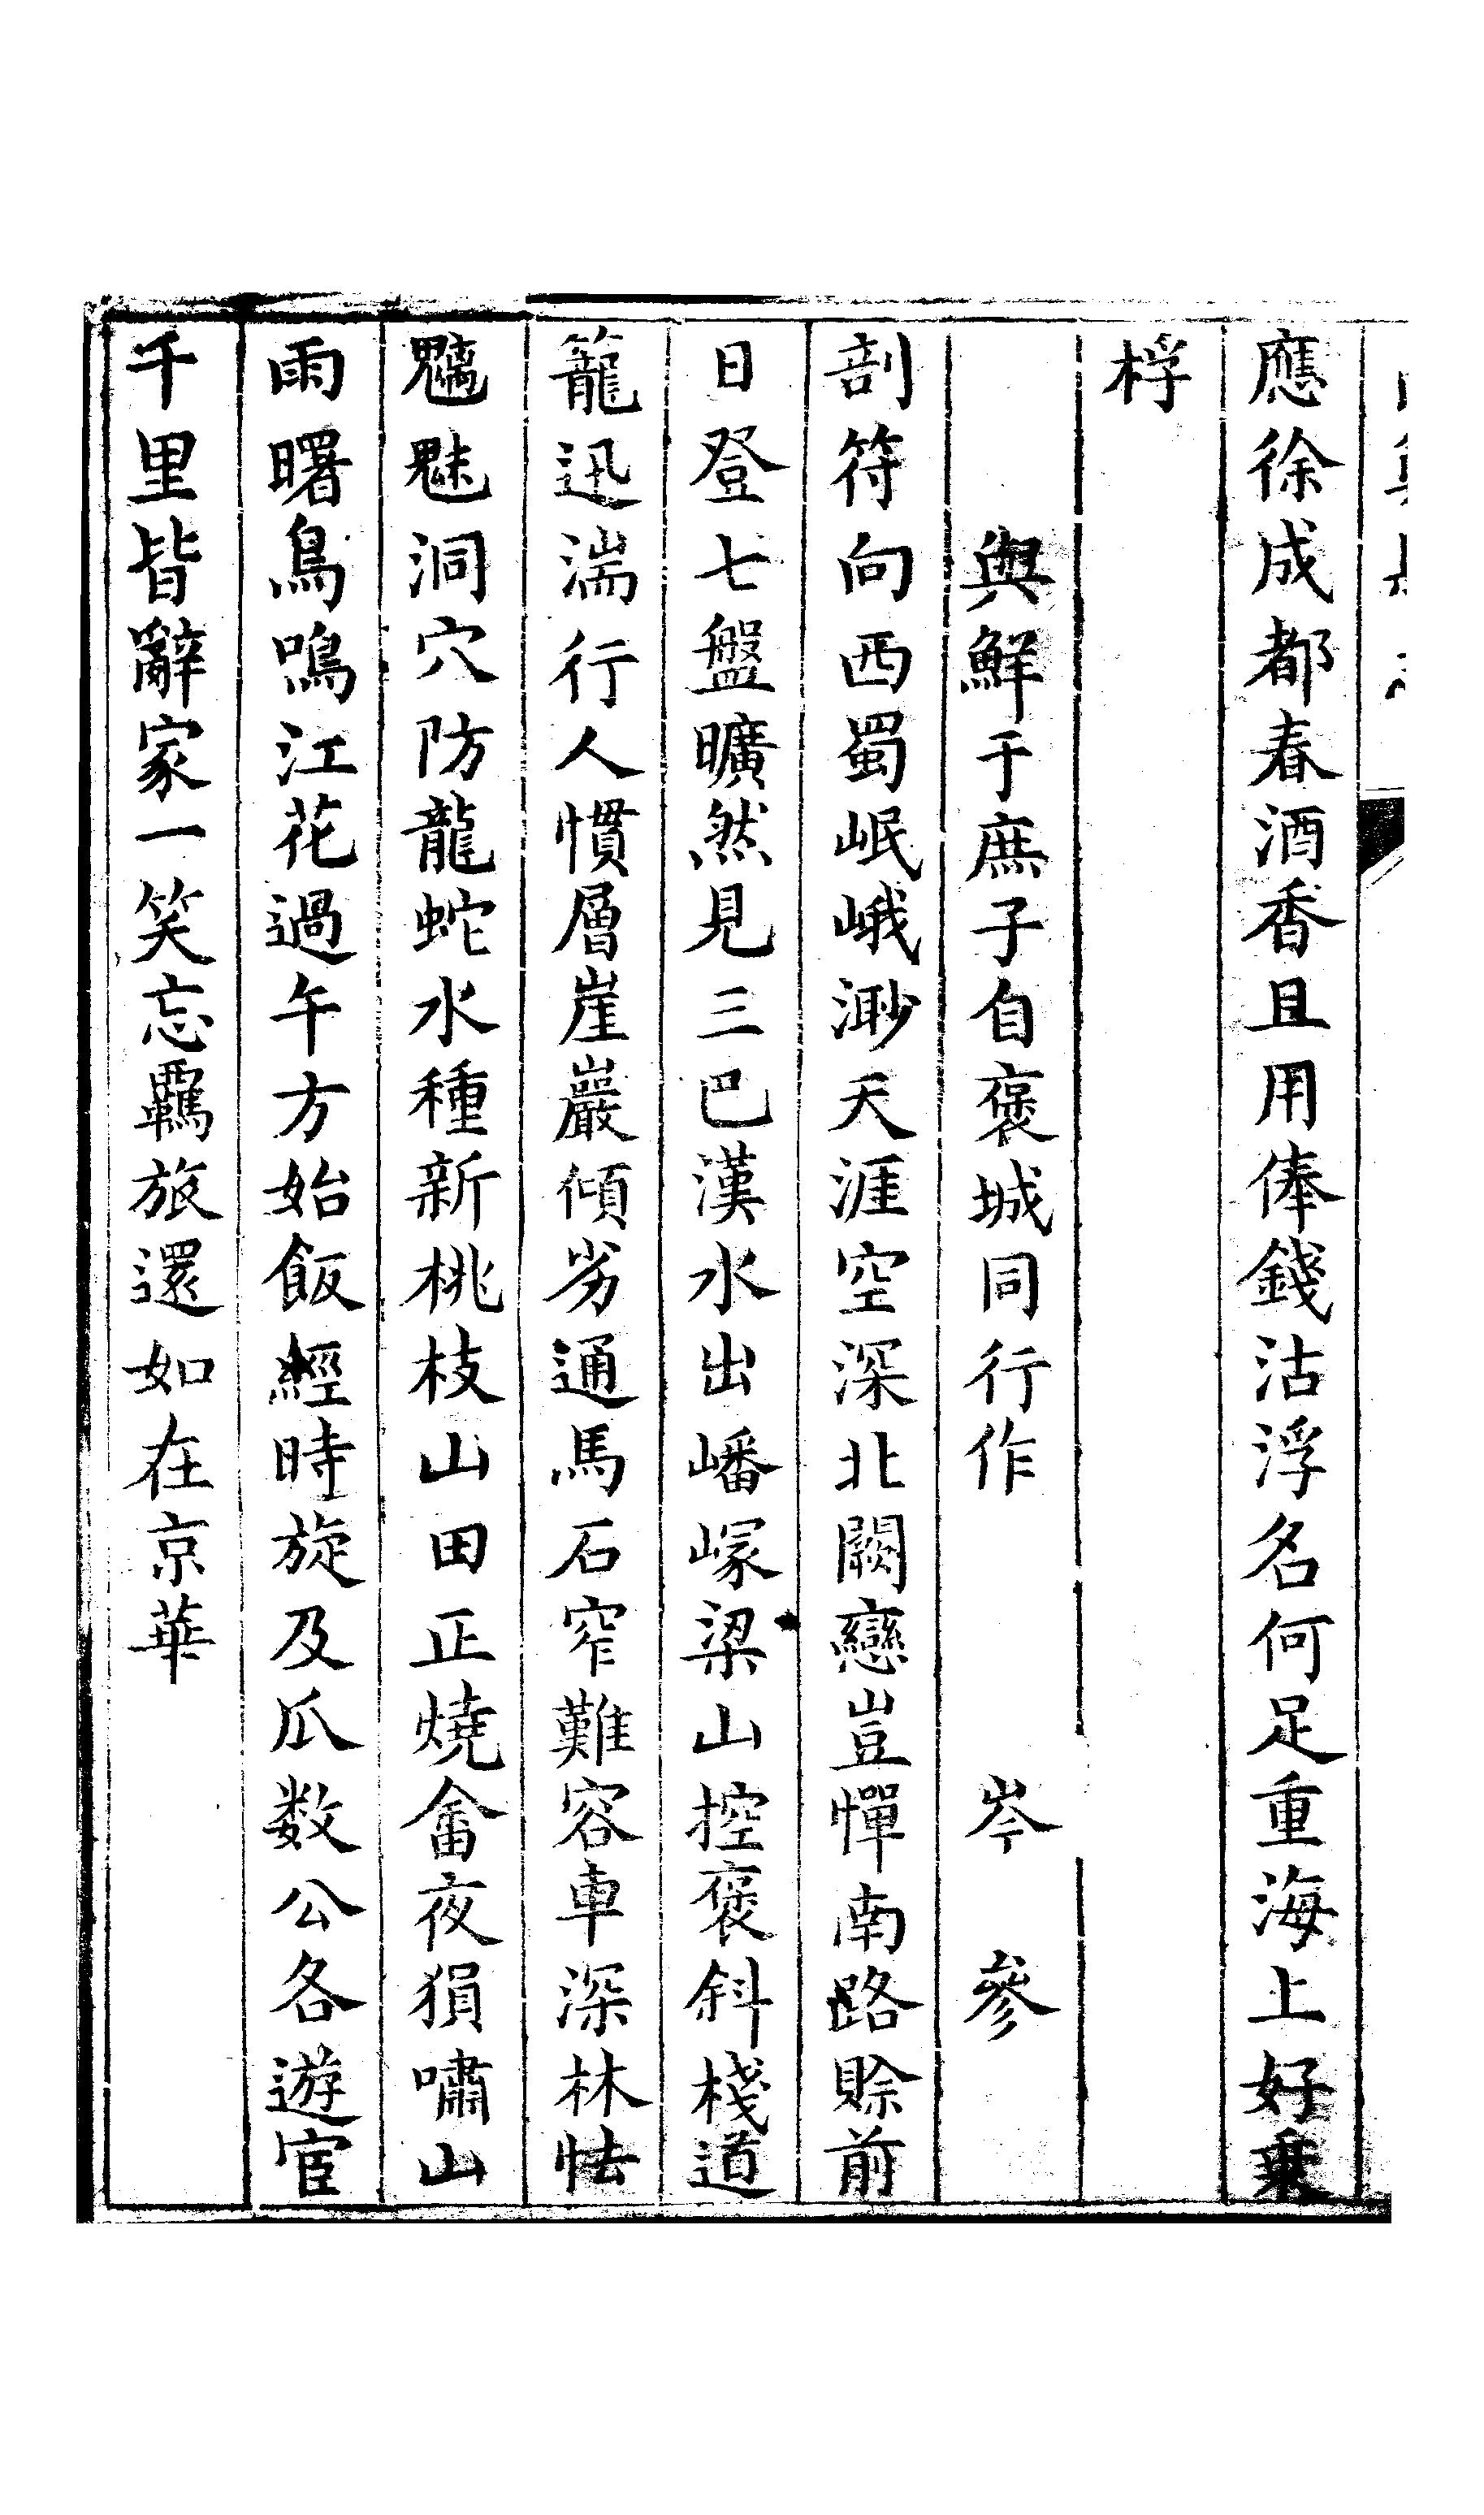 應徐成都春酒香且用俸錢沽浮名何足重海上好乗
桴
與鮮于庶子自褒城同行作 岑參
剖符向西蜀岷峨渺天涯空深北闕戀豈憚南路賒前
日登七盤曠然見三巴漢水出嶓冢梁山控褒斜棧道
籠迅湍行人慣層崖巖傾劣通馬石窄難容車深林怯
魑魅洞穴防龍蛇水種新桃枝山田正燒畬夜猿嘯山
雨曙鳥鳴江花過午方始飯經時旋及瓜数公各遊宦
千里皆辭家一笑忘羇旅還如在京華